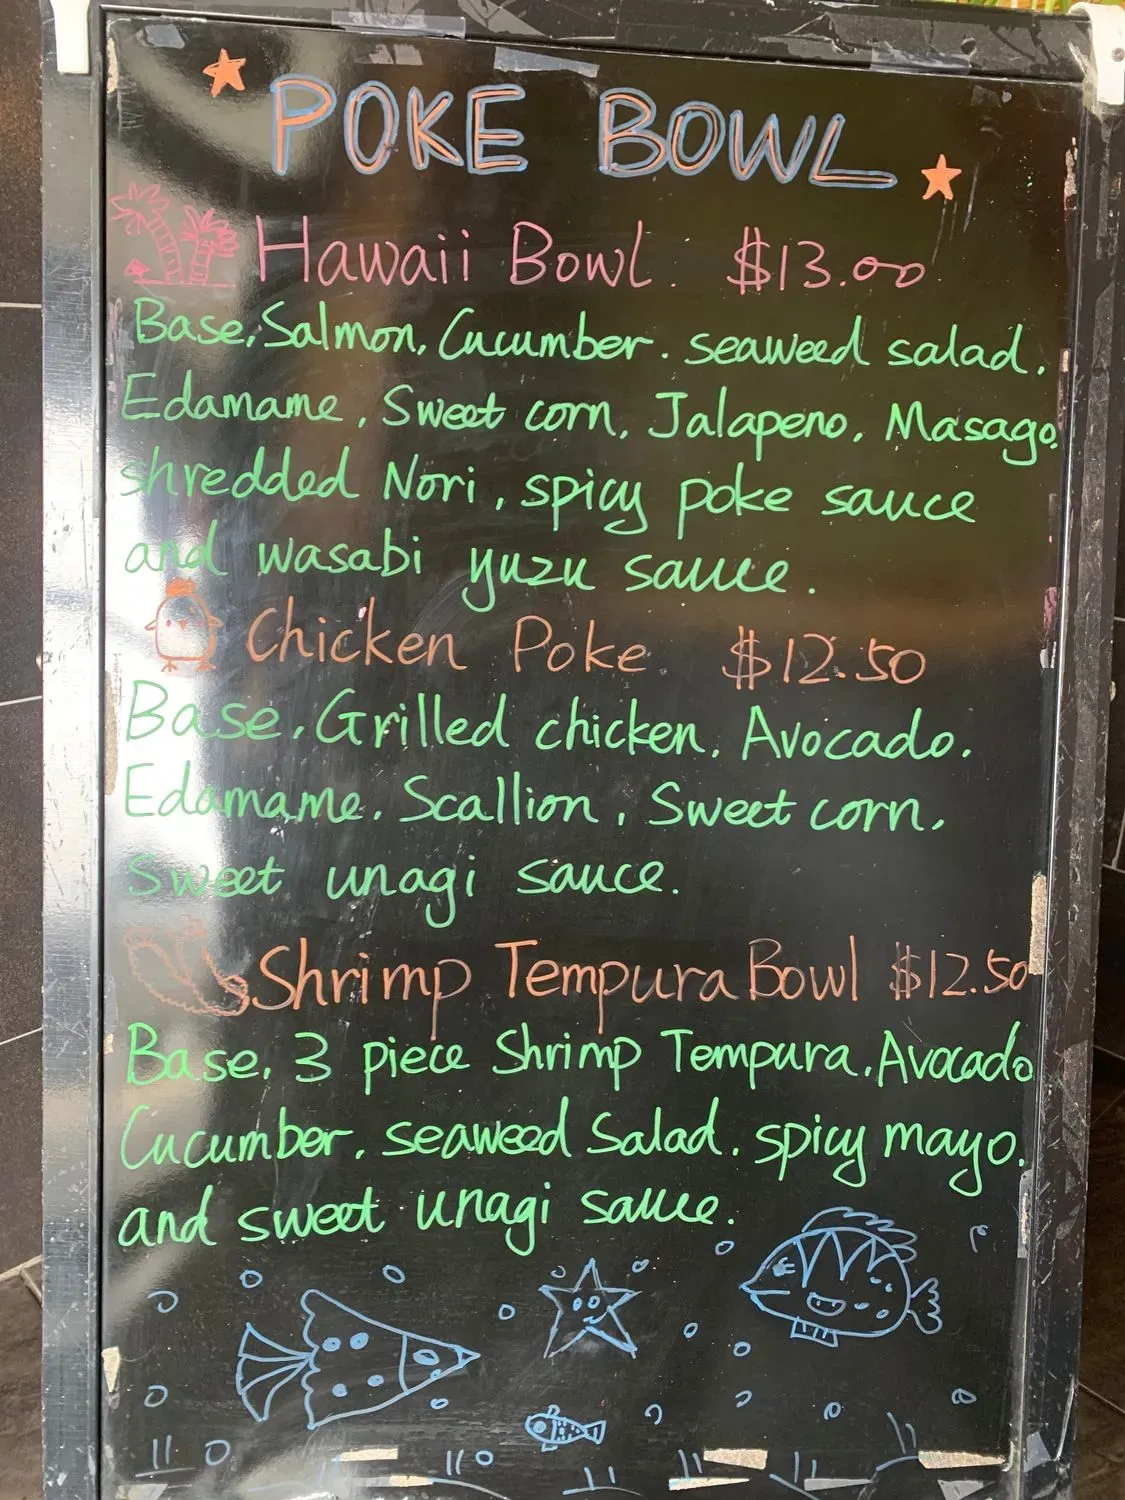 POKE BOWL
Hawaii Bowl. $13.00
Base, Salmon, Cucumber. seaweed salad.
Edamame, Sweet corn, Jalapeno, Masago,
shredded Nori, spicy poke sauce
and wasabi yuzu sauce.
Chicken Poke $12.50
Base, Grilled chicken, Avocado.
Edamame. Scallion, Sweet corn,
Sweet unagi sauce.
Shrimp Tempura Bowl $12.50
Base, 3 piece Shrimp Tempura, Avocado
Cucumber, seaweed Salad. spicy mayo.
and sweet unagi sauce.